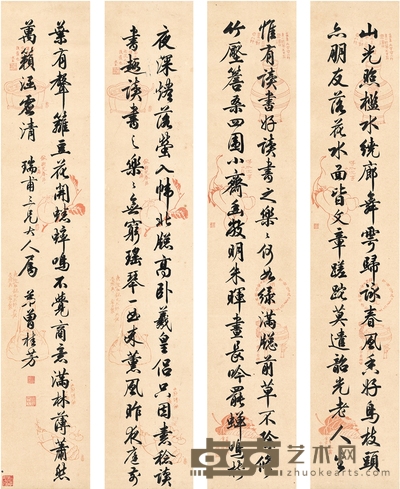 山光照檻水繞廊舞雩歸詠春風香好鳥枝頭
亦朋友落花水面皆文章蹉跎莫遣韶光老人生
惟有讀書好讀書之樂〻何如綠滿牕前草不除修
竹壓簷桑四圍小齋幽敞明朱暉晝長吟罷蟬鳴樹
夜深燼落螢入幃北牕高卧羲皇侶只因素稔讀
書趣讀書之樂〻無窮瑤琴一曲來薰風昨夜庭前
葉有聲籬豆花開蟋蟀鳴不覺商意滿林薄蕭然
萬籟涵虛清 瑞甫三兄大人屬 弟曾桂芳
www.zhuokearts.com